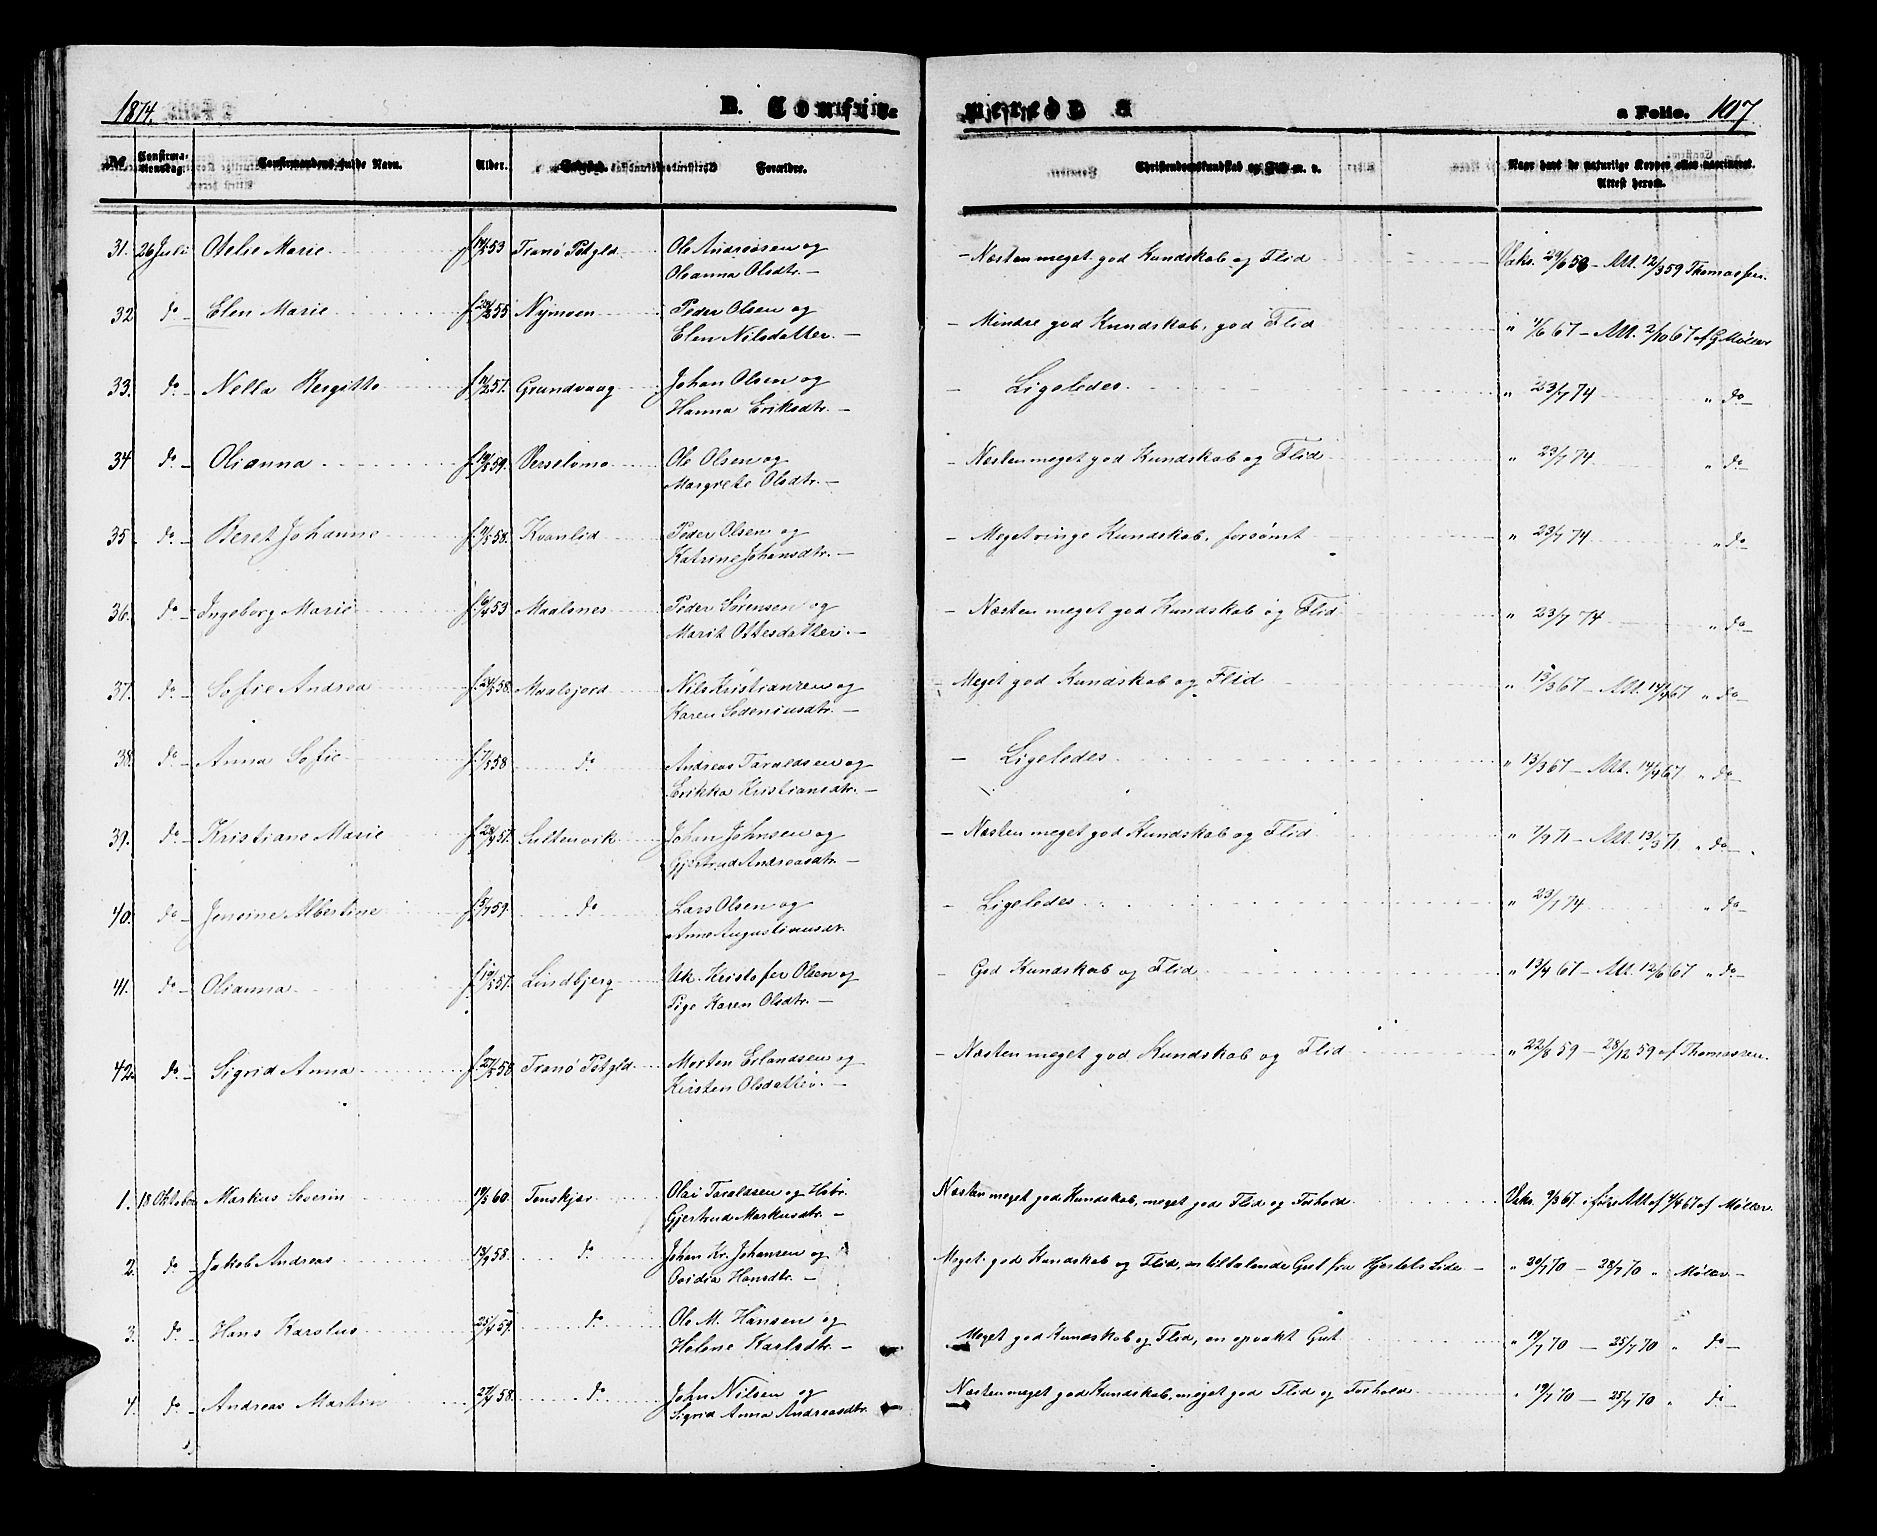 1874.
B. Confir=
merede
a Folio. 107
№
Confirma-
tionsdag.
Confirmandens fulde Navn.
Alder.
Forældre.
Christendomskundskab og Flid m. v.
Naar havt de naturlige Kopper eller vaccineret.
Attest herom.
31. 26 Juli Marie f. 53 Tranø Pstgld Ole Andreasen og — Næsten meget god Kundskab og Flid Vaks. Att. 12/3 59 Thomassen.
Oleanna Olsdtr. —
32 do Elen Marie f. 55 Nymoen Peder Olsen og — Mindre god Kundskab, god Flid " 67 — Att. 2/10 67 af G Møller
Elen Nilsdatter. —
33. do Nella Bergitte f. 57. Grundvaag Johan Olsen og — Ligeledes. " 23/7 74 " do —
Hanna Eriksdtr. —
34 do Olianna f. 59. Ole Olsen og — Næsten meget god Kundskab og Flid " 23/7 74 " do —
Margrete Olsdtr. —
35 do Beret Johanne f. 58. Kvanlid Peder Olsen og — Meget ringe Kundskab, forsømt " 23/7 74 " do —
Katrine Johansdtr. —
36. do Ingeborg Marie f. 53 Maalsnes Peder Sørensen og — Næsten meget god Kundskab og Flid " 23/7 74 " do —
Marit Ottesdatter. —
37. do Sofie Andrea f. 58. Maalsjord Nils Kristiansen og — Meget god Kundskab og Flid " 13/3 67 — Att. 14/4 67 " do —
Karen Sedeniusdtr. —
38. do Anna Sofie f. 58 do Andreas Taraldsen og — Ligeledes " 13/3 67 — Att. 14/4 67 " do —
Erikka Kristiansdtr. —
39. do Kristiane Marie f. 57. Sultenvik Johan Johnsen og — Næsten meget god Kundskab og Flid " 71 — Att. 71 " do —
Gjertrud Andreasdtr. —
40. do Jensine Albertine f. 59. do Lars Olsen og — Ligeledes " 23/7 74 " do —
Anne Augustinusdr.
41. do Olianna f. 57. Lindbjerg Uk. Kristofer Olsen og — God Kundskab og Flid " 13/4 67 — Att. 12/6 67 " do —
Pige Karen Olsdtr. —
42. do Sigrid Anna f. 58 Tranø Pstgld. Morten Erlandsen og — Næsten meget god Kundskab og Flid " 22/8 59 — 28/12 59 af Thomassen.
Kirsten Olsdatter. —
1. 18 Oktober Markus Severin 60. Tenskjær Olai Taraldsen og Hstr. Næsten meget god Kundskab, meget god Flid og Forhold Vaks. 9/3 67 ifølge Att af 67 af Møller.
Gjertrud Markusdtr. —
2. do Jakob Andreas 58. do Johan Kr. Johansen og Meget god Kundskab og Flid, en tiltalende Gut fra Hjertets Side — " 20/7 70 — 28/7 70 " Møller —
Ovidia Hansdtr. —
3. do Hans Karolus 59. do Ole M. Hansen og Meget god Kundskab og Flid, en opvakt Gut " 19/7 70 — 25/7 70 " do —
Helene Karlsdtr. —
4. do Andreas Martin 58. do John Nilsen og Næsten meget god Kundskab, meget god Flid og Forhold " 19/7 70 — 25/7 70 " do —
Sigrid Anna Andreasdtr.